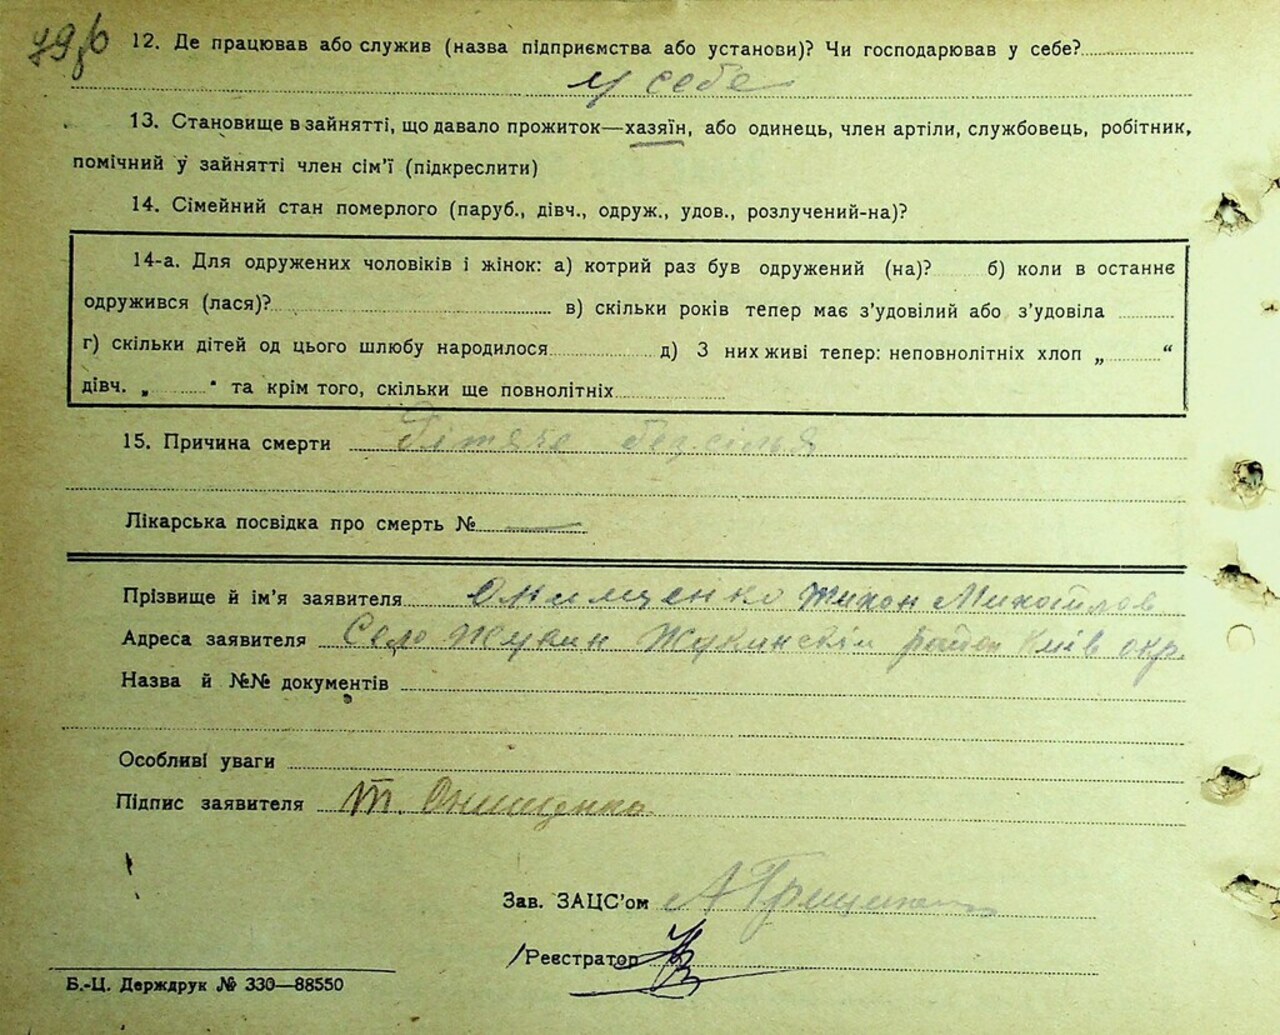 79 об
12. Де працював або служив (назва підприємства або установи)? Чи господарював у себе?
у себе
13. Становище в зайнятті, що давало прожиток—хазяїн, або одинець, член артіли, службовець, робітник,
помічний у зайнятті член сім'ї (підкреслити)
14. Сімейний стан померлого (паруб., дівч., одруж., удов., розлучений-на)?
14-а. Для одружених чоловіків і жінок: а) котрий раз був одружений (на)? б) коли в останнє
одружився (лася)? в) скільки років тепер має з'удовілий або з'удовіла
г) скільки дітей од цього шлюбу народилося д) З них живі тепер: неповнолітніх хлоп „ “
дівч. „ “ та крім того, скільки ще повнолітніх
15. Причина смерти Дітяче безсілья
Лікарська посвідка про смерть № —
Прізвище й ім'я заявителя Онищенко Тихон Михайлов
Адреса заявителя Село Жукин Жукинский район Київ окр.
Назва й №№ документів
Особливі уваги
Підпис заявителя Т. Онищенко
Зав. ЗАЦС'ом А Грищенко
/Реєстратор
Б.-Ц. Держдрук № 330—88550